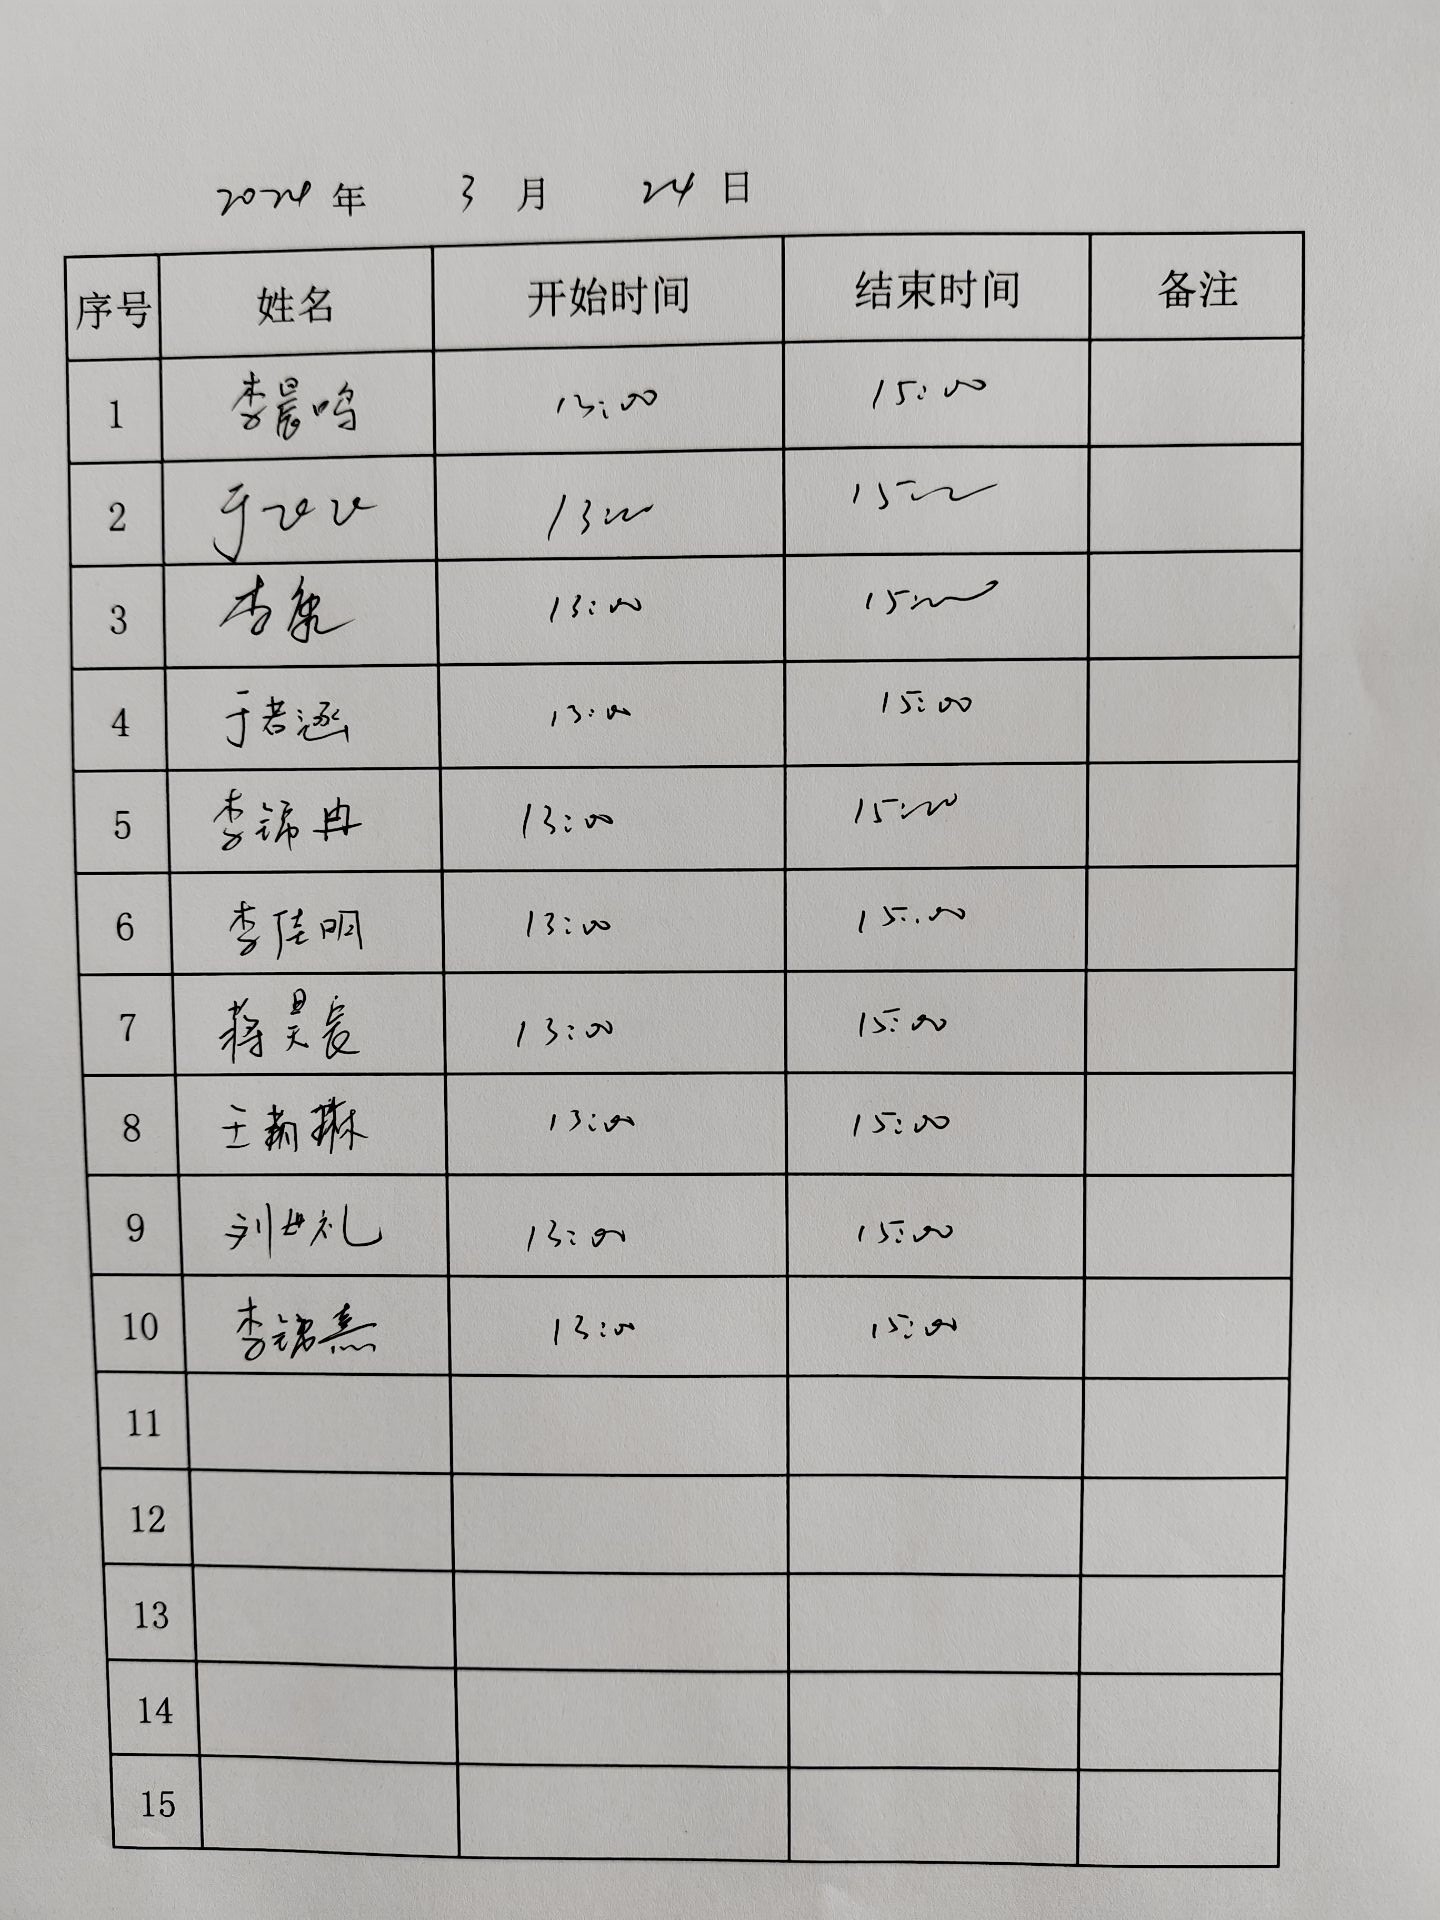 2024年 3月 24日
序号 姓名 开始时间 结束时间 备注
1 李晨鸣 13:00 15:00
2 于 13:00 15:00
3 李康 13:00 15:00
4 于若涵 13:00 15:00
5 李锦冉 13:00 15:00
6 李佳明 13:00 15:00
7 蒋昊辰 13:00 15:00
8 王莉琳 13:00 15:00
9 刘世礼 13:00 15:00
10 李锦熹 13:00 15:00
11
12
13
14
15